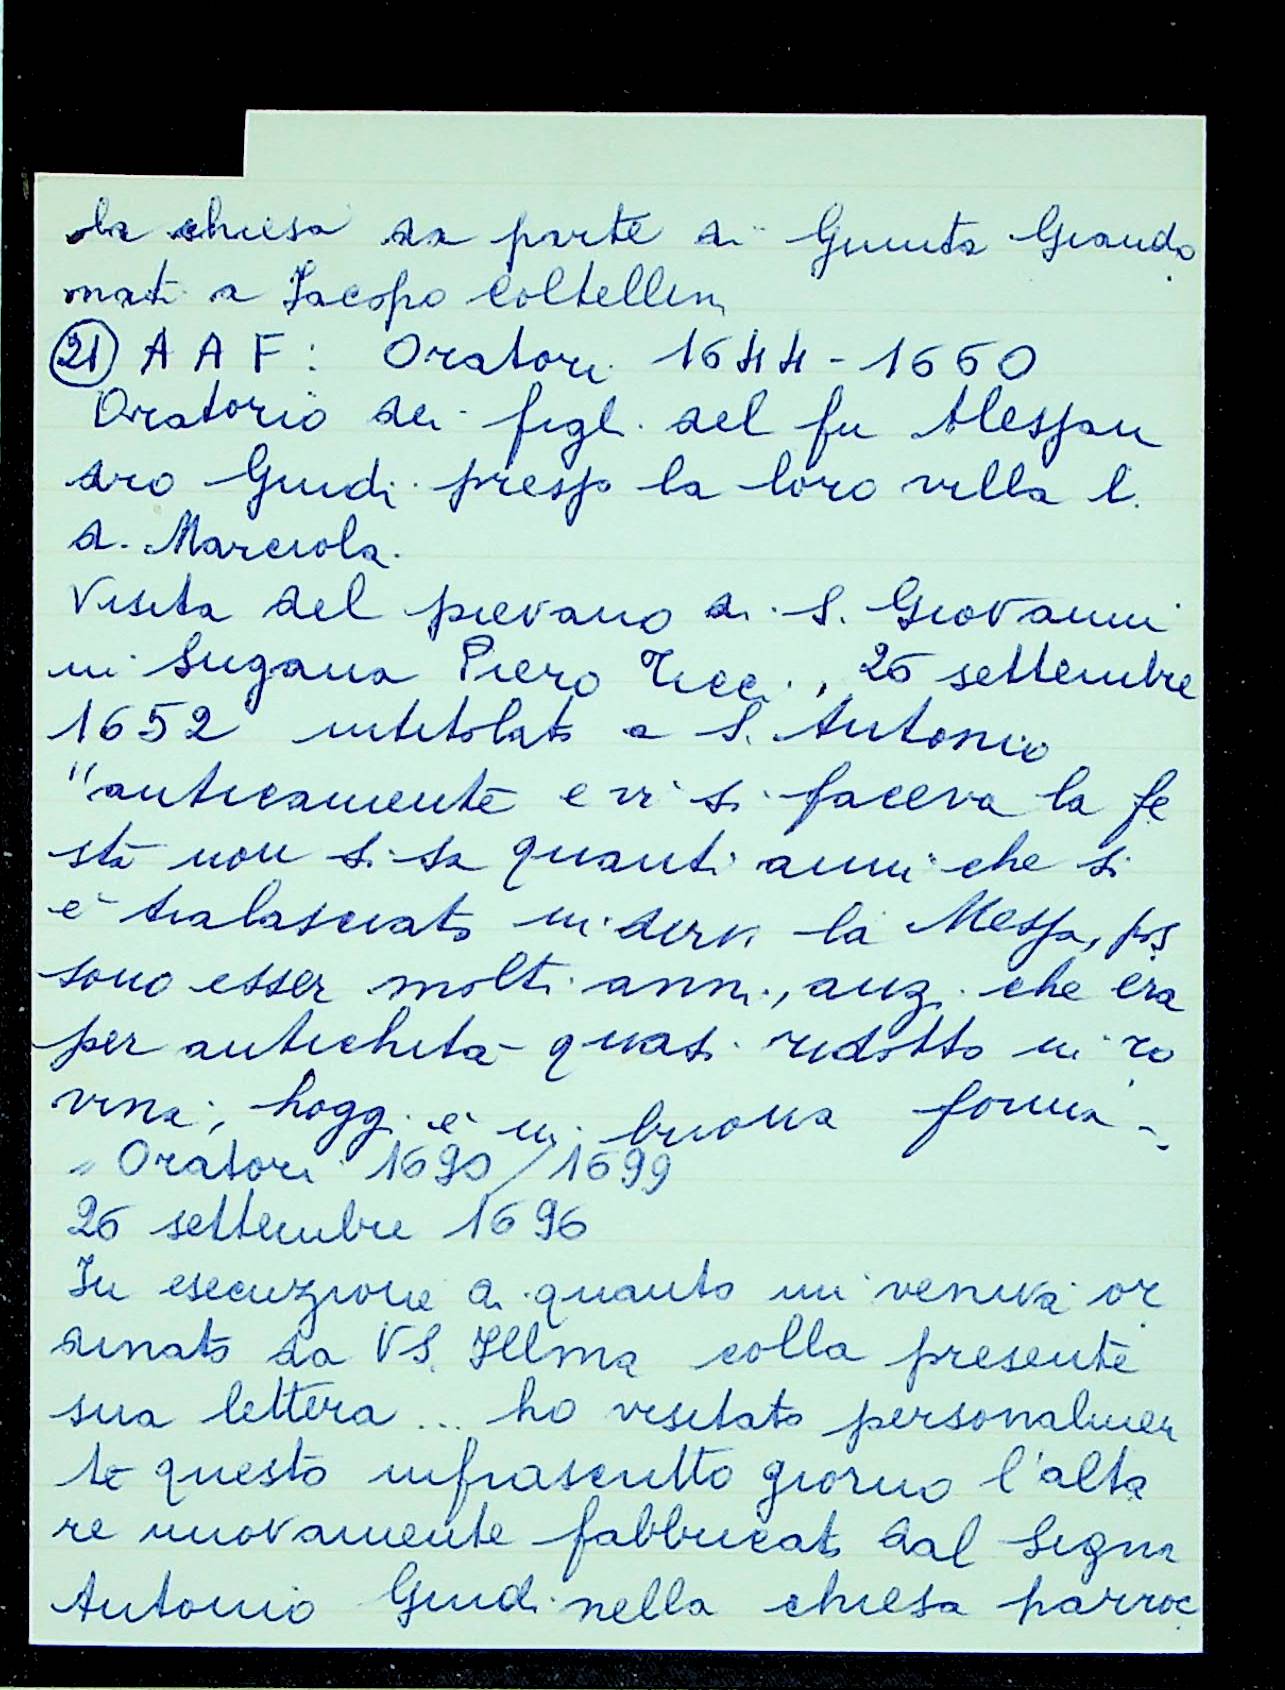 la chiesa da parte di Giunta Giando
nati a Jacopo Coltellini
(21) A A F: Oratori 1644-1660
Oratorio dei figli del fu Alessan
dro Guidi presso la loro villa l.
d. Marciola.
Visita del pievano di S. Giovanni
in Sugana Piero Ticci, 26 settembre
1652 intitolato a S. Antonio
"anticamente e vi si faceva la fe
sta non si sa quanti anni che si
è tralasciato in dirvi la Messa, pos
sono esser molti anni, anzi che era
per antichità quasi ridotto in ro
vina, hoggi è in buona forma".
" Oratori 1690/1699
26 settembre 1696
In esecuzione di quanto mi veniva or
dinato da VS. Illma colla presente
sua lettera... ho visitato personalmen
te questo infrascritto giorno l'alta
re nuovamente fabbricato dal Signr
Antonio Guidi nella chiesa parroc